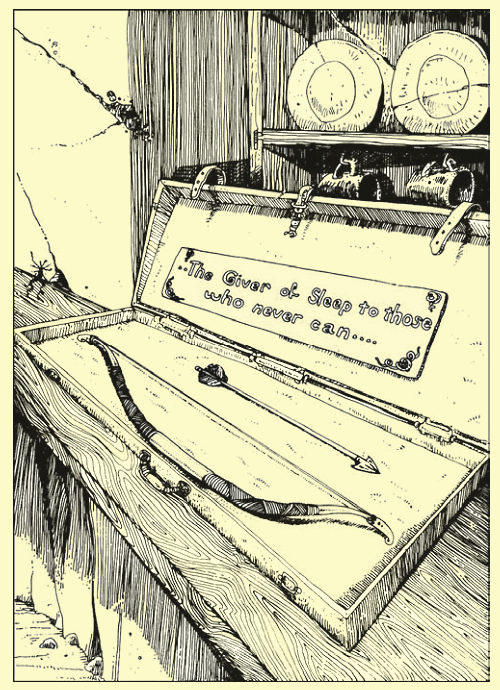 ..The Giver of Sleep to those
who never can....